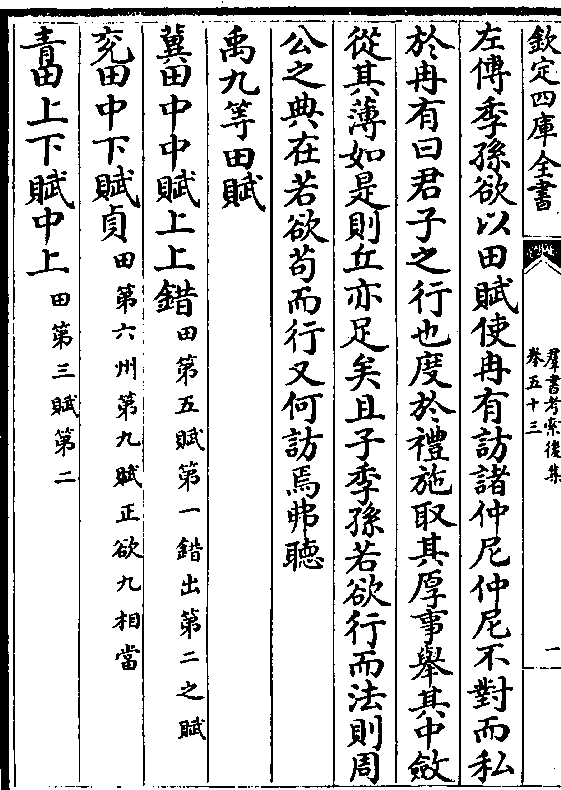 欽定四庫全書
羣書考索後集
卷五十三
一
左傳季孫欲以田賦使冉有訪諸仲尼仲尼不對而私
於冉有曰君子之行也度於禮施取其厚事舉其中斂
從其薄如是則丘亦足矣且子季孫若欲行而法則周
公之典在若欲苟而行又何訪焉弗聴
禹九等田賦
冀田中中賦上上錯田第五賦第一錯出第二之賦
兖田中下賦貞田第六州第九賦正欲九相當
青田上下賦中上田第三賦第二